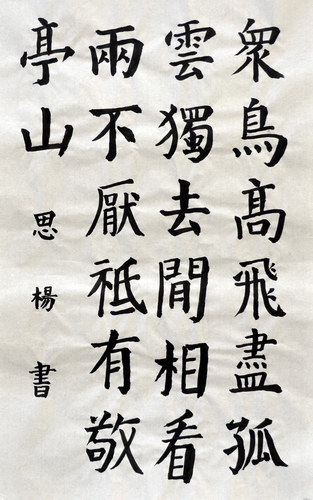 眾鳥高飛盡孤
雲獨去閒相看
兩不厭祗有敬
亭山
思楊書